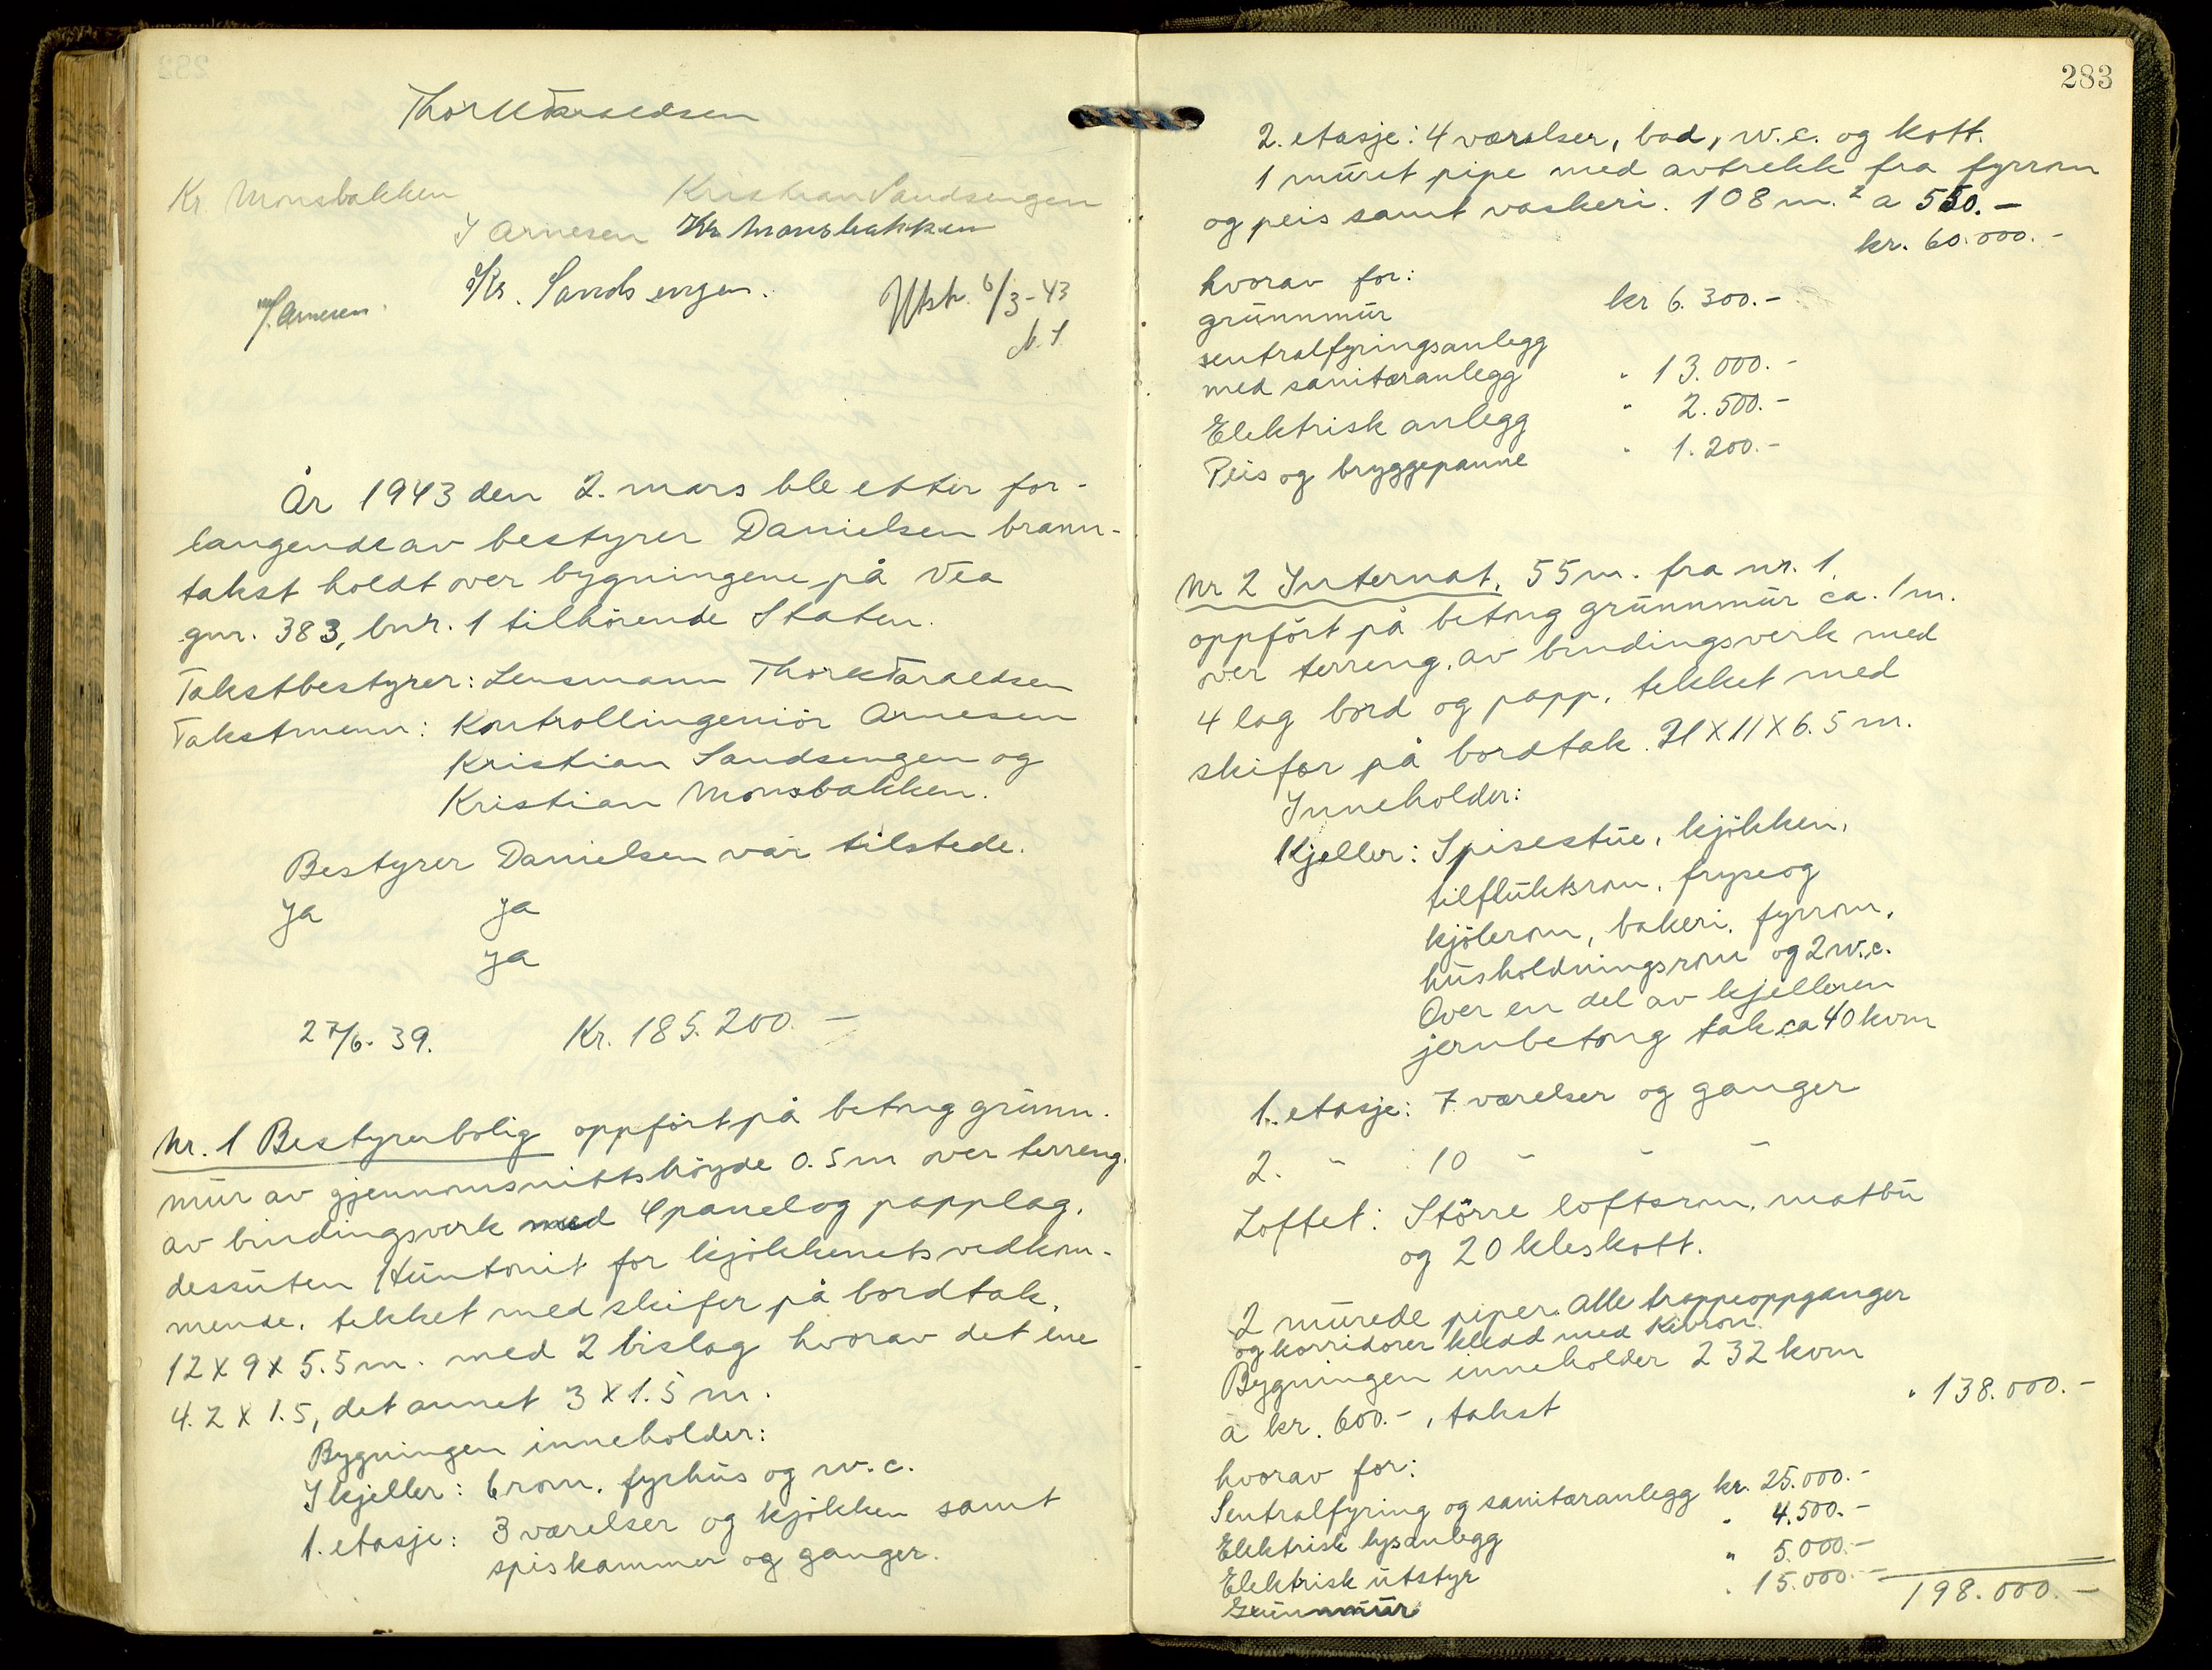 Thor K Taraldsen
Kr Monsbakken Kristian Sandsengen
J Arnesen Kr. Monsbakken
Kr. Sandsengen.
J. Arnesen. Utskr. 6/3-43
År 1943 den 2. mars ble etter for-
langende av bestyrer Danielsen brann-
takst holdt over bygningene på Vea
gnr. 383, bnr. 1 tilhørende Staten.
Takstbestyrer: Lensmann Thor K Taraldsen
Takstmenn: Kontrollingeniör Arnesen
Kristian Sandsengen og
Kristian Monsbakken.
Bestyrer Danielsen var tilstede.
Ja Ja
Ja
27/6-39. Kr. 185.200.—
Nr. 1 Bestyrerbolig oppfört på betong grunn-
mur av gjennomsnittshöyde 0.5 m over terreng,
av bindingsverk med 4 panel og papplag,
dessuten Huntonit for kjökkenets vedkom-
mende, tekket med skifer på bordtak,
12 x 9 x 5.5 m. med 2 bislag hvorav det ene
4.2 x 1.5, det annet 3 x 1.5 m.
Bygningen inneholder:
I kjeller: 6 rom, fyrhus og w.c.
1. etasje: 3 værelser og kjökken samt
spiskammer og ganger.
283
2. etasje: 4 værelser, bad, w.c. og kott.
1 muret pipe med avtrekk fra fyrrom
og peis samt vaskeri. 108 m.² a 550.—
kr. 60.000.-
hvorav for:
grunnmur kr 6.300.-
sentralfyringsanlegg
med sanitæranlegg " 13.000.-
Elektrisk anlegg " 2.500.-
Peis og bryggepanne " 1.200.-
Nr 2 Internat. 55 m. fra nr. 1,
oppfört på betong grunnmur ca. 1 m.
over terreng, av bindingsverk med
4 lag bord og papp, tekket med
skifer på bordtak. 21 x 11 x 6.5 m.
Inneholder:
Kjeller: Spisestue, kjökken,
tilfluktsrom, fryse og
kjölerom, bakeri, fyrrom,
husholdningsrom og 2 w.c.
Over en del av kjelleren
jernbetong tak ca 40 kvm
1. etasje: 7 værelser og ganger
2. " : 10 " " "
Loftet: Större loftsrom, matbu
og 20 kleskott.
2 murede piper. Alle trappeoppganger
og korridorer kledd med Kivron.
Bygningen inneholder 232 kvm
à kr. 600.-, takst " 138.000.-
hvorav for:
Sentralfyring og sanitæranlegg kr. 25.000.-
Elektrisk lysanlegg " 4.500.-
Elektrisk utstyr " 5.000.-
Grunnmur " 15.000.- 198.000.—